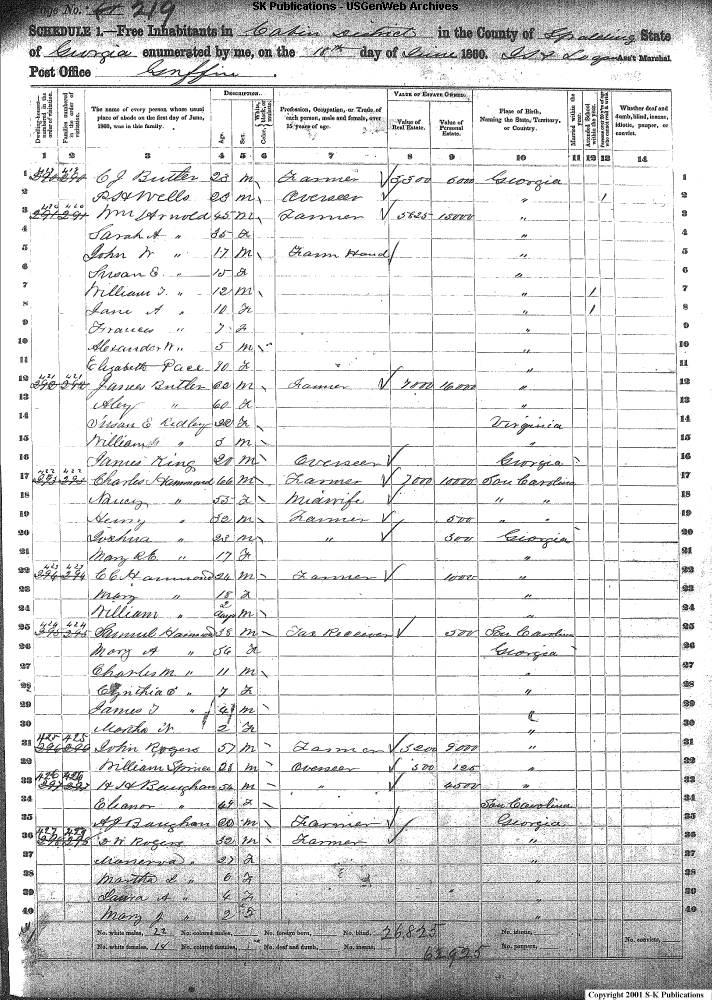 SK Publications - USGenWeb Archives
Page No. 219
SCHEDULE 1.—Free Inhabitants in Cabin District in the County of Spalding State
of Georgia enumerated by me, on the 18th day of June 1860. Logan Ass't Marshal
Post Office Griffin
DESCRIPTION. VALUE OF ESTATE OWNED.
Dwelling-houses—numbered in the order of visitation. Families numbered in the order of visitation. The name of every person whose usual place of abode on the first day of June, 1860, was in this family. Age. Sex. Color, White, black, or mulatto. Profession, Occupation, or Trade of each person, male and female, over 15 years of age. Value of Real Estate. Value of Personal Estate. Place of Birth, Naming the State, Territory, or Country. Married within the year. Attended School within the year. Whether deaf and dumb, blind, insane, idiotic, pauper, or convict.
1 2 3 4 5 6 7 8 9 10 11 12 13 14
1 C J Butler 23 m Farmer 6000 Georgia 1
2 Wells 23 m Overseer " 2
3 Wm Arnold 45 m Farmer 5825 15000 " 3
4 Sarah A " 35 f " 4
5 John W " 17 m Farm Hand " 5
6 Susan E " 15 f " 6
7 William T " 12 m " 1 7
8 Jane A " 10 f " 1 8
9 Frances " 7 f " 9
10 Alexander W " 5 m " 10
11 Elizabeth Pace 40 f " 11
12 421 421 James Butler 62 m Farmer 7000 16000 " 12
13 Aley " 60 f " 13
14 Susan E Ridley f Virginia 14
15 William " 3 m " 15
16 James King 20 m Overseer Georgia 16
17 422 422 Charles Hammond 66 m Farmer 7000 10000 Sou Carolina 17
18 Nancy " 55 f Midwife " " 18
19 Henry " 32 m Farmer 500 " " 19
20 Joshua " 23 m " 500 Georgia 20
21 Mary " 17 f " 21
22 423 423 C C Hammond 24 m Farmer 1000 " 22
23 Mary " 18 f " 23
24 William " 2 days m " 24
25 424 424 Samuel Hammond 38 m Tax Receiver 500 Sou Carolina 25
26 Mary A " 36 f Georgia 26
27 Charles M " 11 m " 27
28 Cynthia C " 7 f " 28
29 James T " 4 m " 29
30 Martha " 2 f " 30
31 425 425 John Rogers 57 m Farmer 3200 9000 " 31
32 William 28 m Overseer 500 125 " 32
33 426 426 Baughan 54 m " 4500 " 33
34 Eleanor " f Sou Carolina 34
35 A J Baughan 20 m Farmer Georgia 35
36 427 Rogers 32 m Farmer " 36
37 Manerva " 27 f " 37
38 Martha " 6 f " 38
39 Laura A " 4 f " 39
40 Mary J " 2 f " 40
No. white males, 22 No. colored males, No. foreign born, No. blind, 26,825 No. idiotic,
No. white females, 14 No. colored females, No. deaf and dumb, No. insane, 62925 No. paupers, No. convicts,
Copyright 2001 S-K Publications